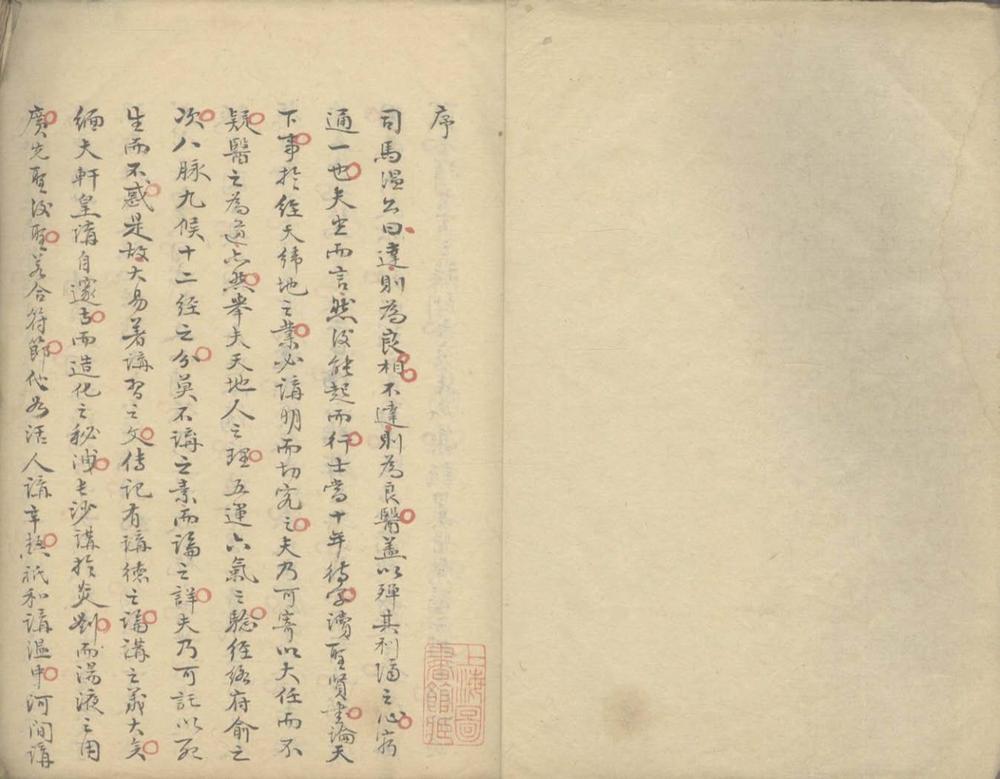 序
司馬温公曰達則為良相不達則為良醫蓋以殫其利濟之心窮
通一也夫坐而言然後能起而行士當十年待字讀聖賢書論天
下事於經天緯地之業必講明而切究之夫乃可寄以大任而不
疑醫之為道亦然舉夫天地人之理五運六氣之驗經絡府俞之
次八脉九候十二經之分莫不講之素而論之詳夫乃可託以死
生而不惑是故大易著講習之文傳記有講德之論講之義大矣
緬夫軒皇講自邃古而造化之秘洩長沙講於炎劉而湯液之用
廣先聖後聖若合符節他如活人講辛熱祇和講温中河間講
上海圖書館藏